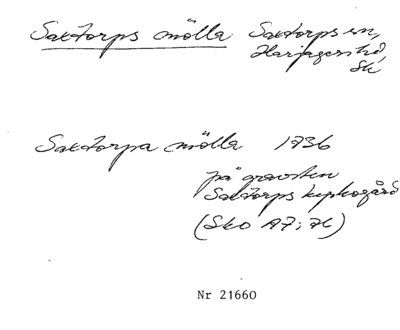 Saxtorps mölla Saxtorps sn,
Harjagers hd,
Sk
Saxtorpa mölla 1736
på gravsten
Saxtorps kyrkogård
(Sko A7:76)
Nr 21660